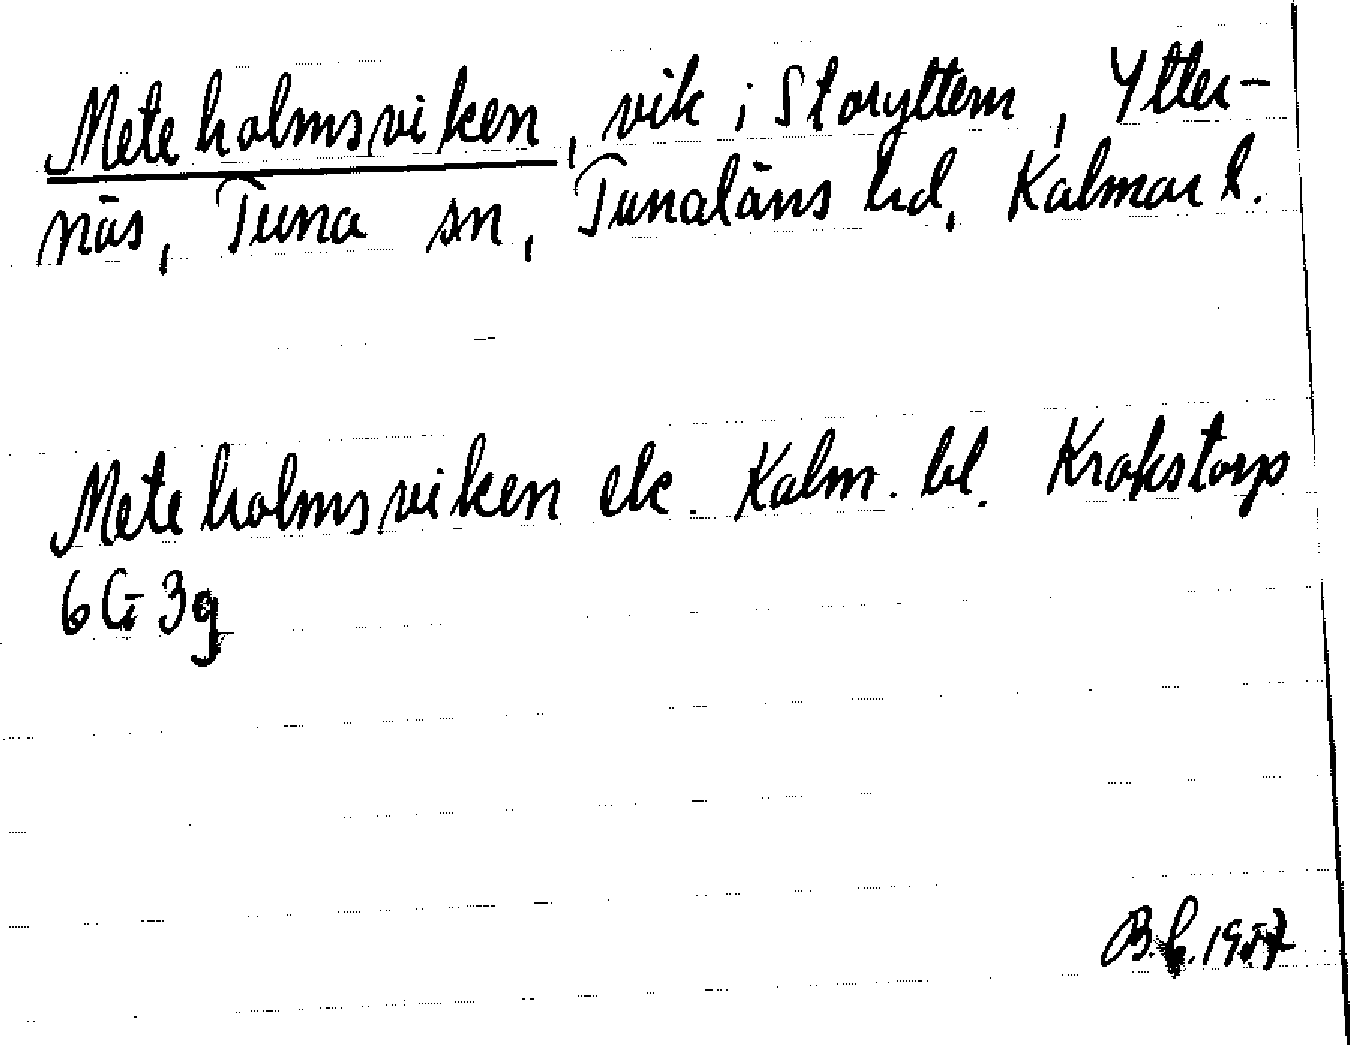 Meteholmsviken, vik i Storyttern, Ytter-
näs, Tuna sn, Tunaläns hd, Kalmar l.
Meteholmsviken ek. Kalm. bl. Krokstorp
6G 3g
1957